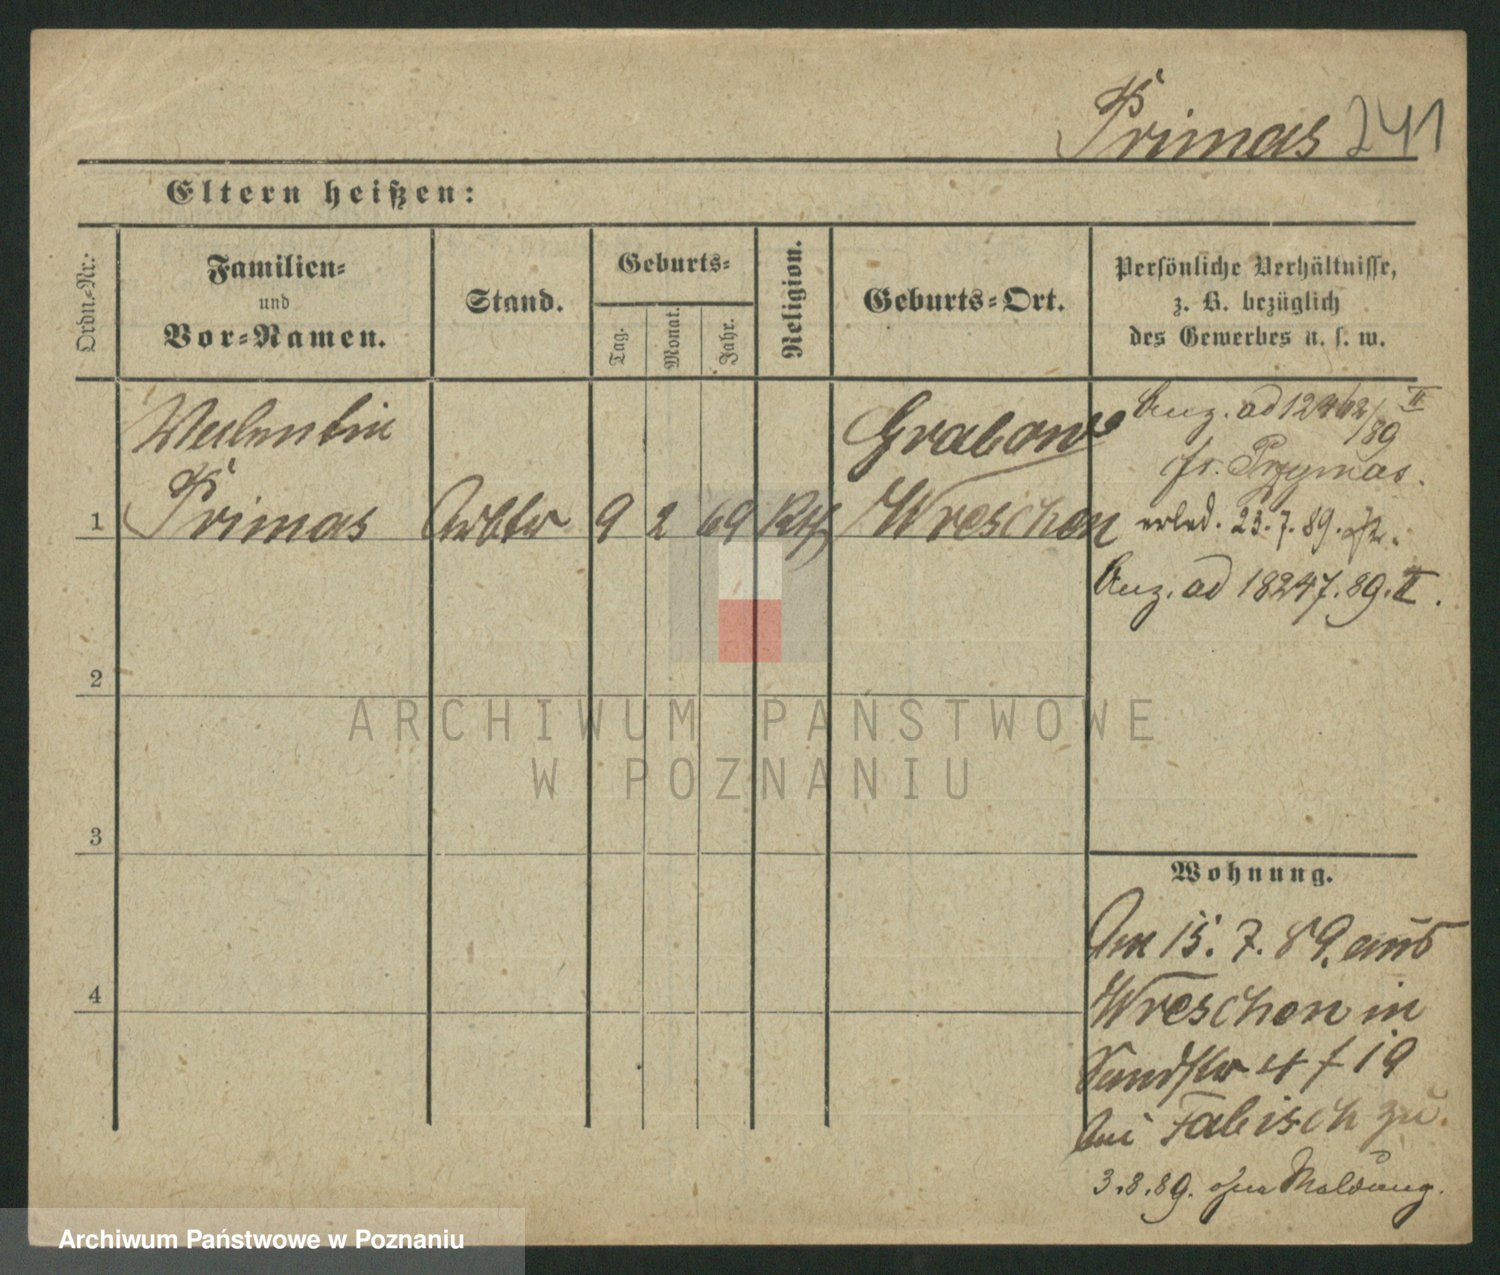 Primas 241
Eltern heißen:
Ordn.-Nr.:
Familien-
und
Vor-Namen.
Stand.
Geburts-
Tag.
Monat.
Jahr.
Religion.
Geburts-Ort.
Persönliche Verhältnisse,
z. B. bezüglich
des Gewerbes u. s. w.
Valentin
Primas
1
Arbtr
9 2 69 Kth
Grabowo
Wreschen
Anz. ad 12462/89 II
fr. Przymas.
erled. 23.7.89.
Anz. ad 18247.89.II.
2
3
4
Wohnung.
Am 15. 7. 89. aus
Wreschen in
Sandstr 4 f 19
bei Fabisch zu.
3.8.89. ohne Meldung.
ARCHIWUM PAŃSTWOWE
W POZNANIU
Archiwum Państwowe w Poznaniu